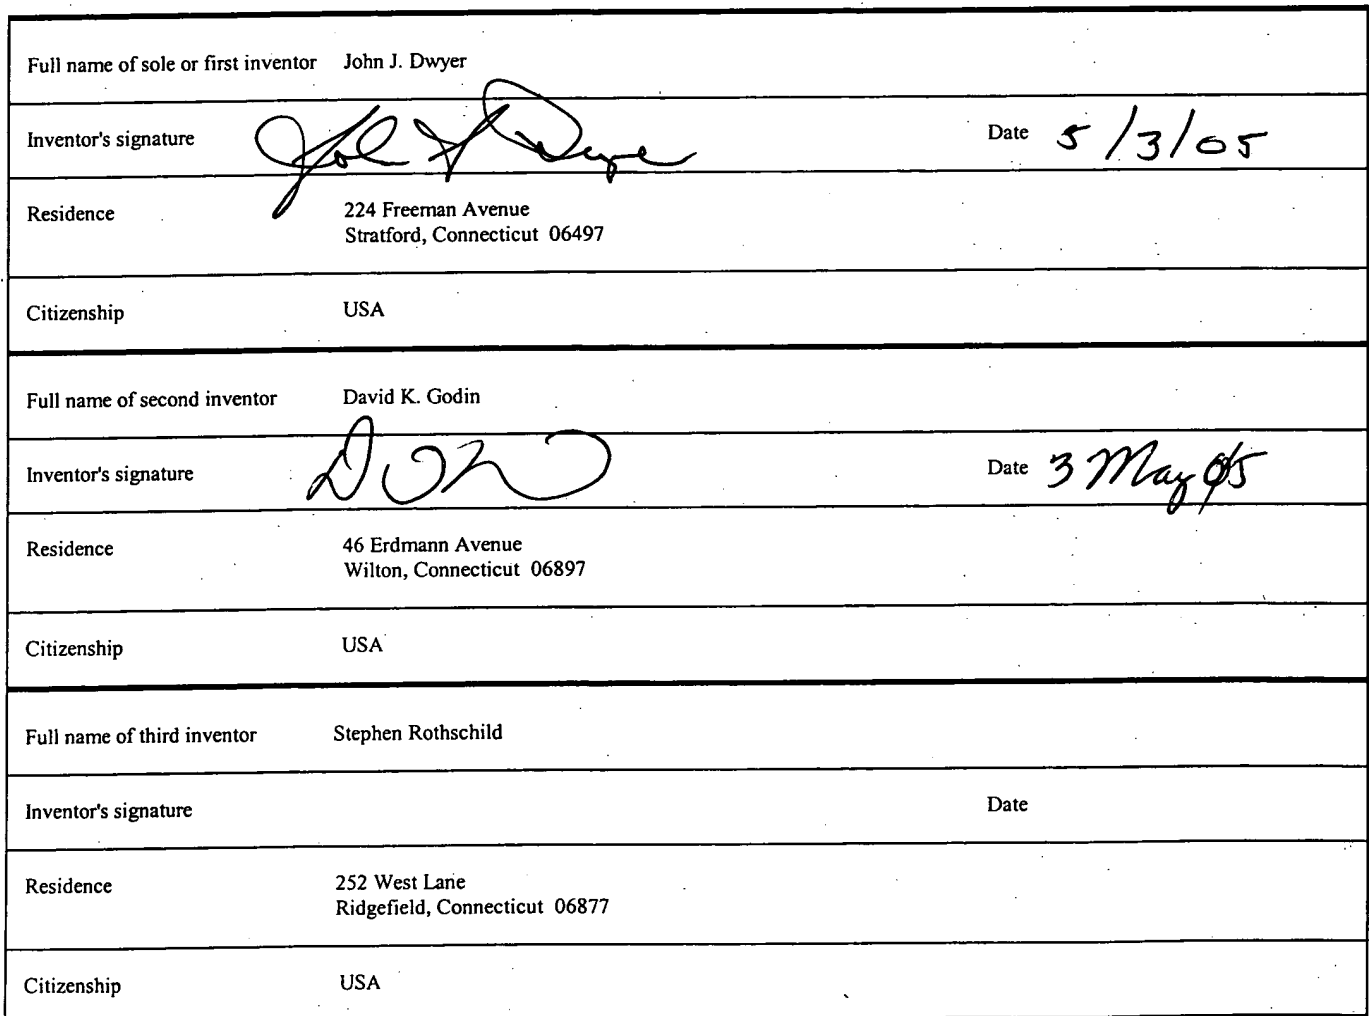 Full name of sole or first inventor John J. Dwyer
Inventor's signature John J Dwyer Date 5/3/05
Residence 224 Freeman Avenue
Stratford, Connecticut 06497
Citizenship USA
Full name of second inventor David K. Godin
Inventor's signature Date 3 May 05
Residence 46 Erdmann Avenue
Wilton, Connecticut 06897
Citizenship USA
Full name of third inventor Stephen Rothschild
Inventor's signature Date
Residence 252 West Lane
Ridgefield, Connecticut 06877
Citizenship USA